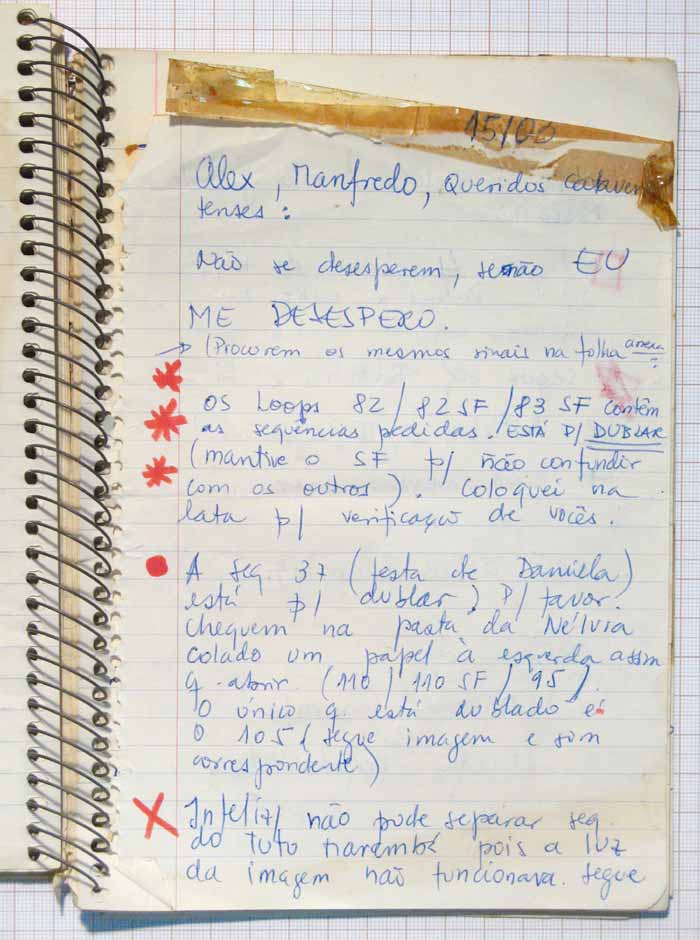 15/00
Alex, Manfredo, Queridos
tenses:
Não se desesperem, senão EU
ME DESESPERO.
→ (Procurem os mesmos sinais na folha anexa
OS Loops 82 / 82 SF / 83 SF contêm
as sequências pedidas. ESTÁ P/ DUBLAR
(mantive o SF p/ não confundir
com os outros). Coloquei na
lata p/ verificação de vocês.
A seq 37 (festa de Daniela)
está p/ dublar) P/ favor.
cheguem na pasta da
colado um papel à esquerda assim
q. abrir. (110 / 110 SF / 95).
O único q. está dublado é
O 105 (segue imagem e som
correspondente)
X Infeliz/ não pode separar seq.
do Tuto pois a luz
da imagem não funcionava. segue